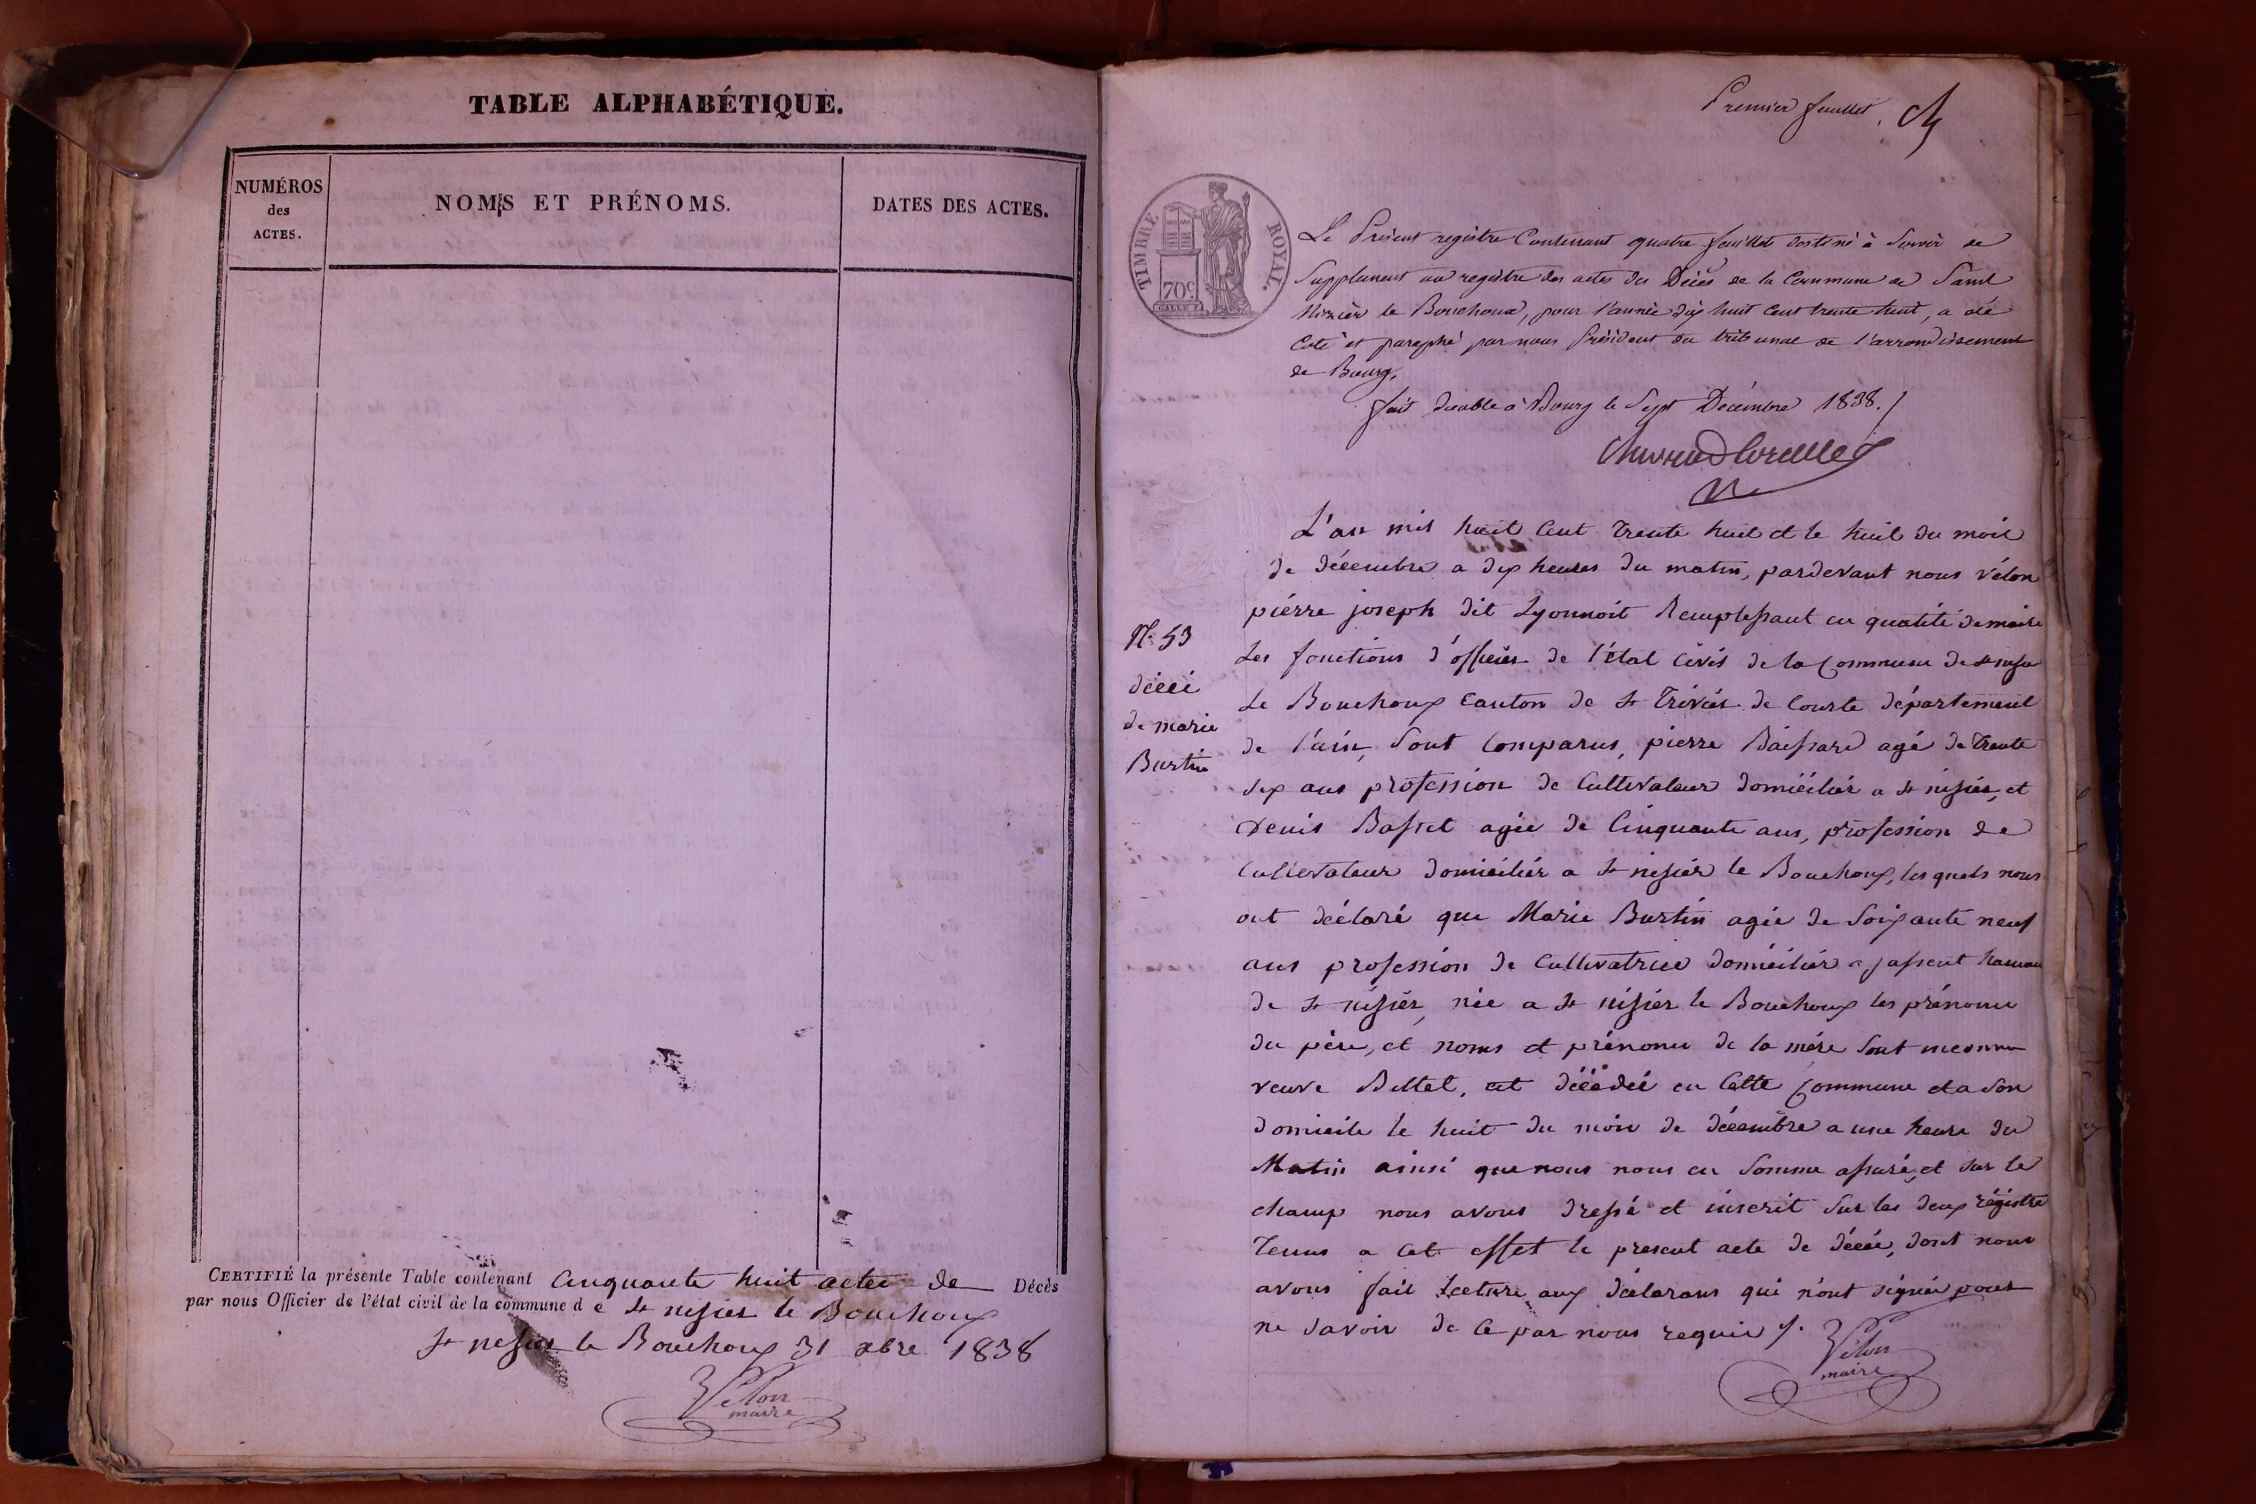 TABLE ALPHABÉTIQUE.
NUMÉROS
des
ACTES.
NOMS ET PRÉNOMS.
DATES DES ACTES.
CERTIFIÉ la présente Table contenant Cinquante huit actes de Décès
par nous Officier de l'état civil de la commune d e St nisier le Bouchoux
St nisier le Bouchoux 31 xbre 1838
Vélon
maire
Premier feuillet.
TIMBRE ROYAL.
70c
Le Présent registre Contenant quatre feuillets destiné à Servir de
Supplement au registre des actes des Décès de la Commune de Saint
Nizier le Bouchoux, pour l'année dix huit Cent trente huit, a été
Coté et paraphé par nous Président du tribunal de l'arrondissement
de Bourg.
fait double à Bourg le Sept Décembre 1838.
L'an mil huit Cent trente huit et le huit du mois
de décembre a dix heures du matin, pardevant nous Vélon
piérre joseph dit Lyonnoit Remplessant en qualité de maire
Les fonctions d'officier de l'état Civil de la Commune de St nisier
Le Bouchoux Canton de St Trivier de Courte département
de l'ain, Sont Comparus, pierre Baissard agé de trente
six ans profession de Cultivateur domicilier a St nisier, et
Denis Basset agée de Cinquante ans, profession de
Cultivateur domicilier a St nisier le Bouchoux, les quels nous
ont déclaré que Marie Burtin agée de Soixante neuf
ans profession de Cultivatrice domicilier a jassent hameau
de St nisier, née a St nisier le Bouchoux les prénoms
du père, et noms et prénoms de la mère Sont inconnu
veuve Bettet, est décédée en Cette Commune et a Son
domicile le huit du mois de décembre a une heure du
Matin ainsi que nous nous en Somme assuré, et Sur le
champ nous avons dressé et inscrit Sur les deux régistre
Tenus a Cet effet le present acte de décès, dont nous
avons fait Lecture aux déclarans qui n'ont signée pour
ne Savoir de Ce par nous requis
Vélon
maire
N° 53
décéé
de marie
Burtin